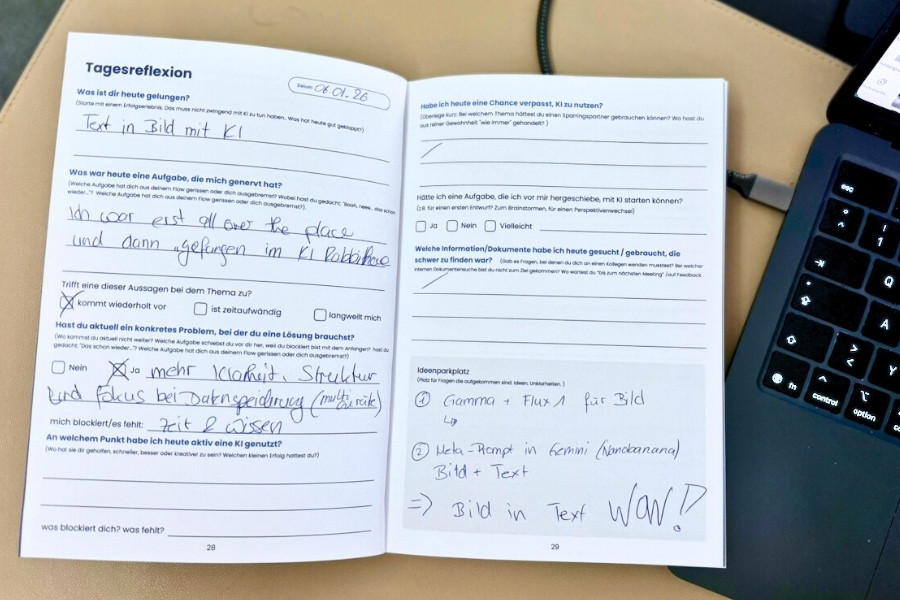 Tagesreflexion
Datum: 06.01.26
Was ist dir heute gelungen?
(Starte mit einem Erfolgserlebnis. Das muss nicht zwingend mit KI zu tun haben. Was hat heute gut geklappt?)
Text in Bild mit KI
Was war heute eine Aufgabe, die mich genervt hat?
(Welche Aufgabe hat dich aus deinem Flow gerissen oder dich ausgebremst? Wobei hast du gedacht: "Boah, neee... die schon
wieder..."? Welche Aufgabe hat dich aus deinem Flow gerissen oder dich ausgebremst?).
Ich war erst all over the place
und dann "gefangen im KI Rabbithole
Trifft eine dieser Aussagen bei dem Thema zu?
kommt wiederholt vor
ist zeitaufwändig
langweilt mich
Hast du aktuell ein konkretes Problem, bei der du eine Lösung brauchst?
(Wo kommst du aktuell nicht weiter? Welche Aufgabe schiebst du vor dir her, weil du blockiert bist mit dem Anfangen? hast du
gedacht: "Das schon wieder..."? Welche Aufgabe hat dich aus deinem Flow gerissen oder dich ausgebremst?)
Nein
Ja mehr Klarheit, Struktur
und Fokus bei Datenspeicherung (multi
mich blockiert/es fehlt: Zeit & Wissen
An welchem Punkt habe ich heute aktiv eine KI genutzt?
(Wo hat sie dir geholfen, schneller, besser oder kreativer zu sein? Welchen kleinen Erfolg hattest du?)
was blockiert dich? was fehlt?
28
Habe ich heute eine Chance verpasst, KI zu nutzen?
(Überlege kurz: Bei welchem Thema hättest du einen Sparringspartner gebrauchen können? Wo hast du
aus reiner Gewohnheit "wie immer" gehandelt?)
Hätte ich eine Aufgabe, die ich vor mir hergeschiebe, mit KI starten können?
(z.B. für einen ersten Entwurf? Zum Brainstormen, für einen Perspektivenwechsel)
Ja
Nein
Vielleicht
Welche Information/Dokumente habe ich heute gesucht / gebraucht, die
schwer zu finden war? (Gab es Fragen, bei denen du an einen Kollegen wenden musstest? Bei welcher
internen Dokumentensuche bist du nicht zum Ziel gekommen? Wo wartest du "bis zum nächsten Meeting" /auf Feedback
Ideenparkplatz
(Platz für Fragen die aufgekommen sind. Ideen. Unklarheiten.)
① Gamma + Flux 1 für Bild
↳
② Meta-Prompt in Gemini (Nanobanana)
Bild + Text
=> Bild in Text WOW!?
29
esc
!
1
Q
A
>
<
Y
fn
control
option